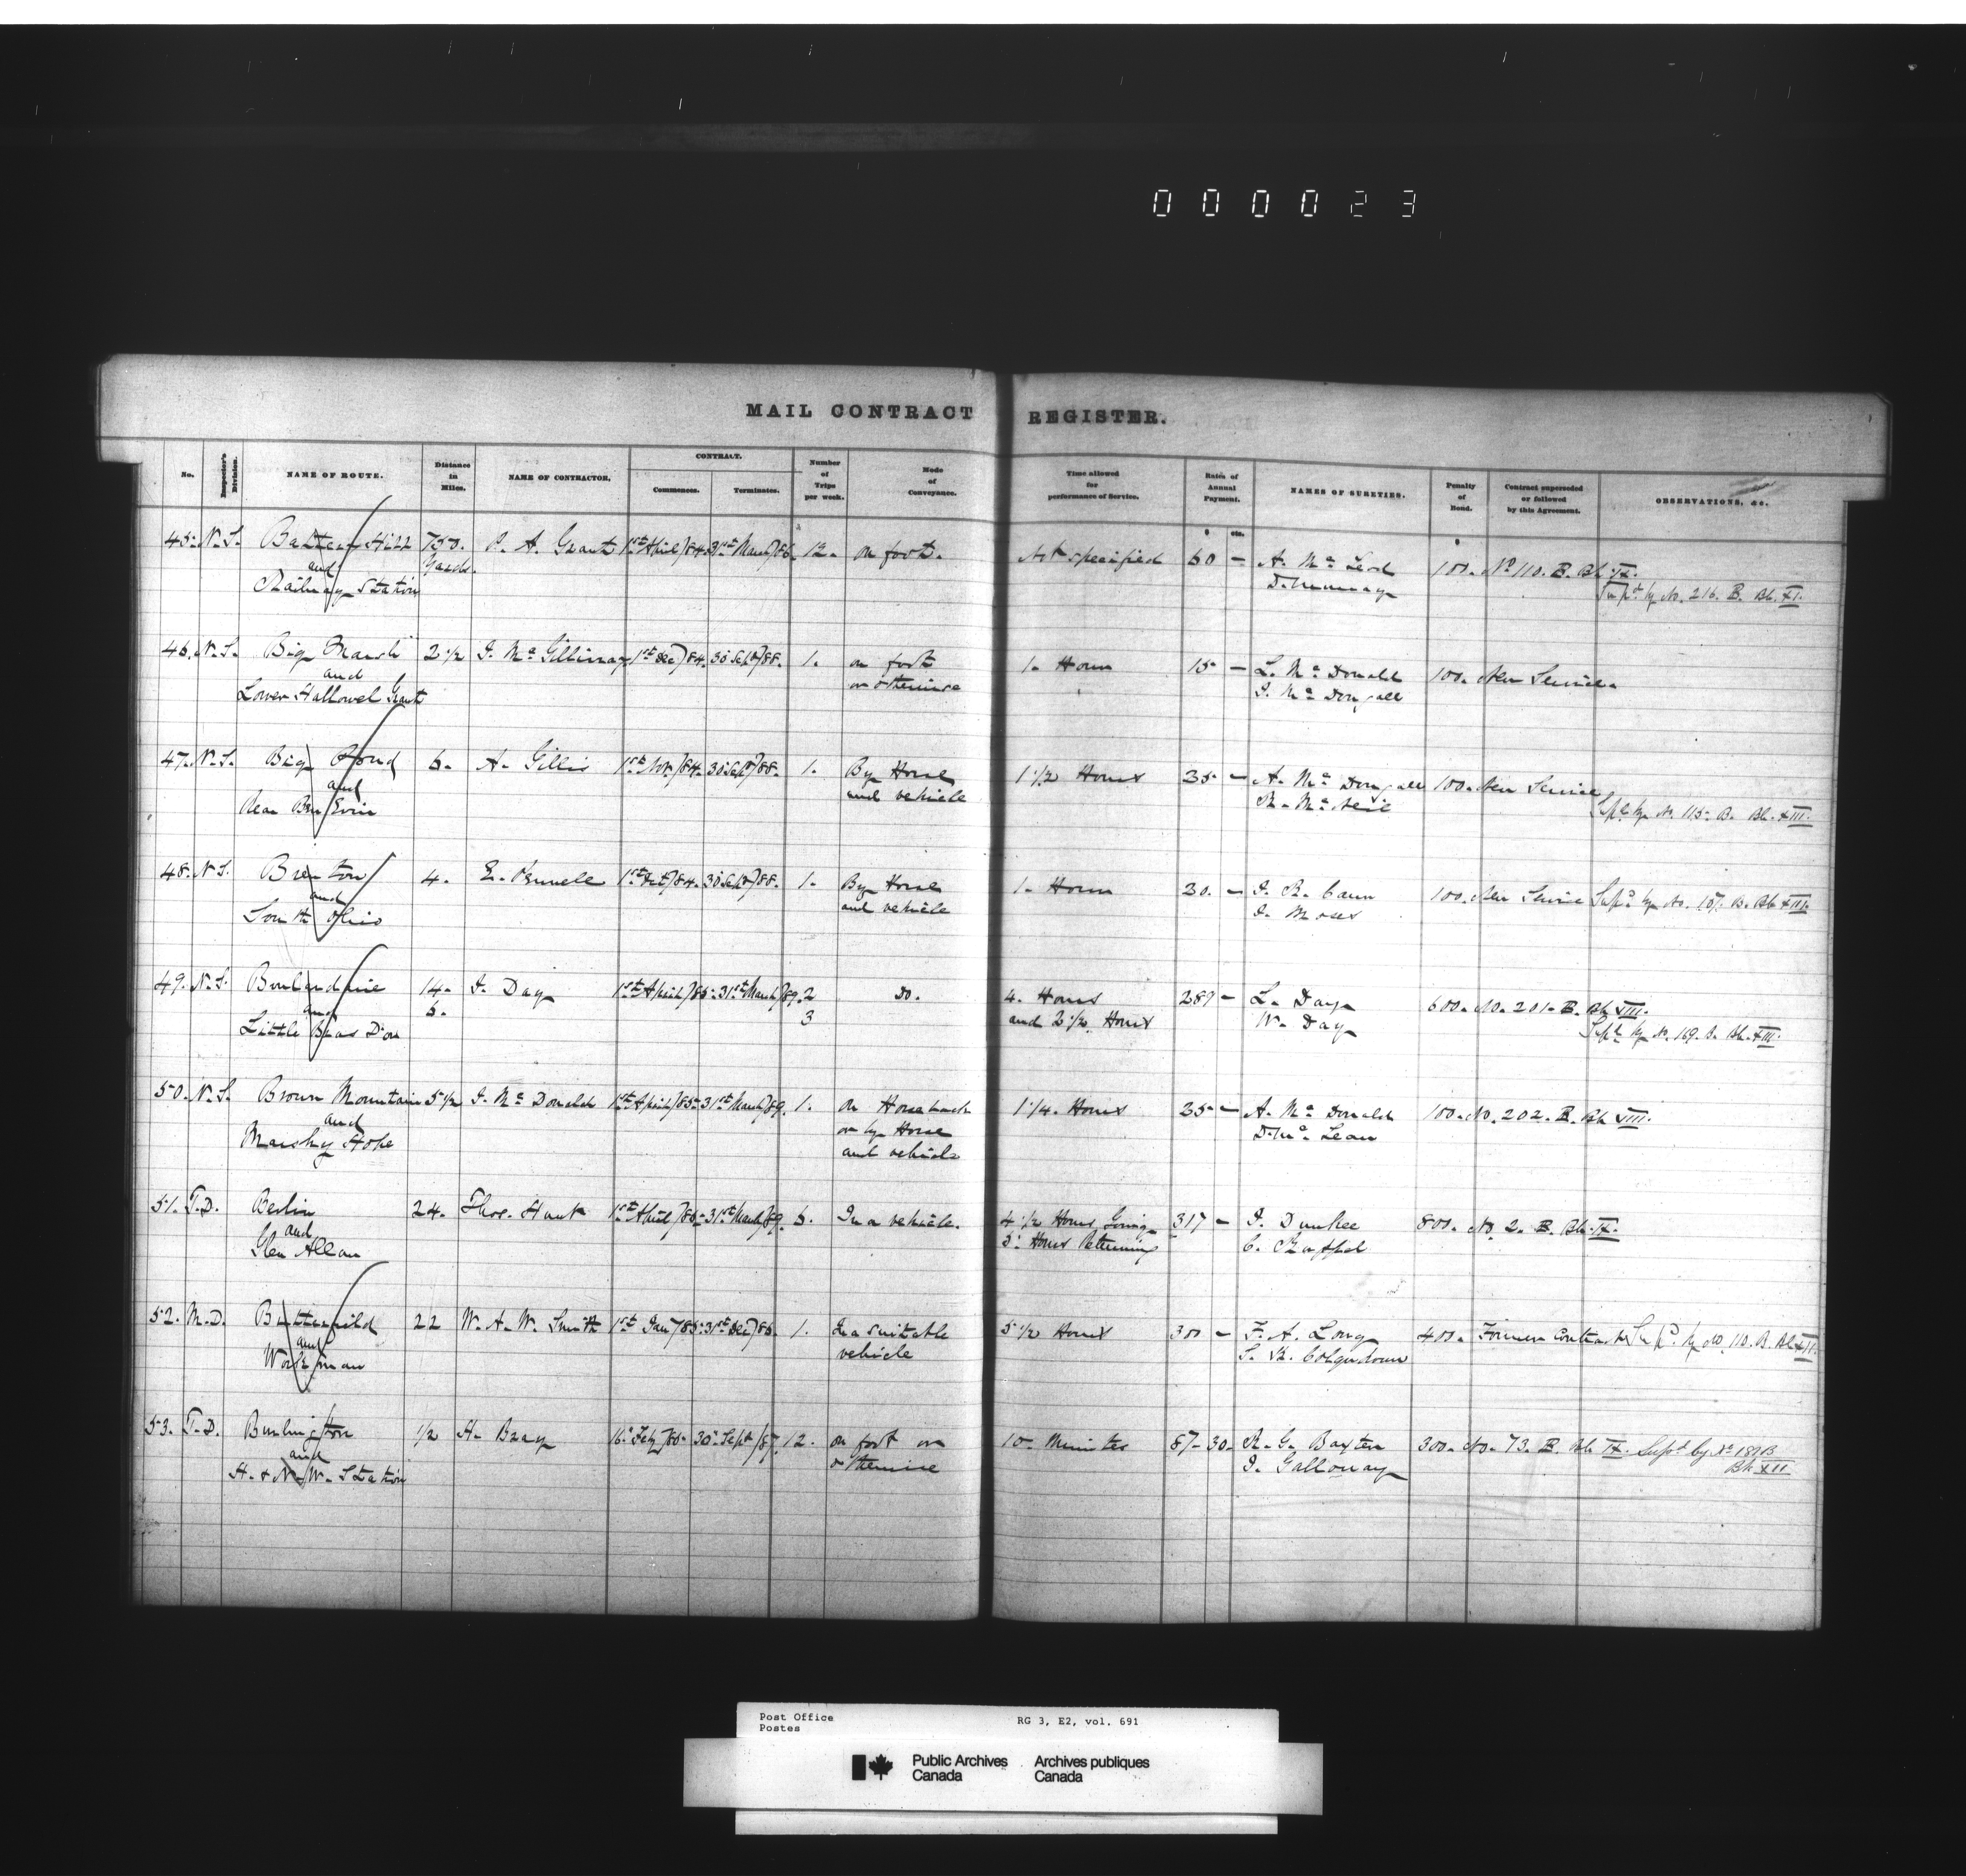 000023
MAIL CONTRACT REGISTER.
No. Inspector's Division. NAME OF ROUTE. Distance in Miles. NAME OF CONTRACTOR. CONTRACT. Commences. Terminates. Number of Trips per week. Mode of Conveyance. Time allowed for performance of Service. Rates of Annual Payment. NAMES OF SURETIES. Penalty of Bond. Contract superseded or followed by this Agreement. OBSERVATIONS, &c.
$ cts. $
45. N.S. Hill 750. P. A. Grant 1st April/84. 31st March/86. 12. on foot. Not specified 60 - A. Mc Leod 100. No 110. B. Bk IX.
and Yards. D. Murray Supd by No. 216. B. Bk. XI.
Railway Station
46. N.S. Big Marsh 2 1/2 J. Mc Gillivray 1st Dec/84. 30 Sept/88. 1. on foot 1. Hour 15 - L. Mc Donald 100. New Service.
and or otherwise J. Mc Dougall
Lower Hallowel Grant
47. N.S. Big Pond 6. A. Gillis 1st Nov./84. 30 Sept/88. 1. By Horse 1 1/2 Hours 35 - A. Mc Dougall 100. New Service
and and vehicle R. Mc Neil Supd by No. 115 B. Bk. XIII.
Rear Ben Eoin
48. N.S. Brenton 4. E. 1st Oct/84. 30 Sept/88. 1. By Horse 1. Hour 30. - J. R. Cann 100. New Service Supd by No. 107. B. Bk XIII.
and and vehicle J. Moses
South Ohio
49. N.S. 14. J. Day 1st April/85. 31st March/89. 2 Do. 4. Hours 289 - L. Day 600. No. 201. B. Bk VIII.
and 6. 3 and 2 1/2 Hours W. Day Supd by No. 169. B. Bk. XIII.
Little Bras D'or
50. N.S. Brown Mountain 5 1/2 J. Mc Donald 1st April/85 31st March/89. 1. on Horseback 1 1/4. Hours 35 - A. Mc Donald 100. No. 202. B. Bk VIII.
and or by Horse D. Mc Lean
Marshy Hope and vehicle
51. T.D. Berlin 24. Thos. Hauk 1st April/85 31st March/89. 6. In a vehicle. 4 1/2 Hours Going 317 - J. Dunkee 800. No. 2. B. Bk. IX.
and 5 Hours Returning C.
Glen Allan
52. M.D. Butterfield 22 W. A. W. Smith 1st Jan/85 31st Dec/86. 1. In a suitable 5 1/2 Hours 300 - F. A. Long 400. Former Contractor Supd. by No. 110. B. Bk XII.
and vehicle S. R. Colquhoun
Workman
53. T.D. Burlington 1/2 H. Bray 16 Feby/86. 30 Sept/87. 12. on foot or 10. Minutes 87-30. R. G. Baxter 300. No. 73. B. Bk IX. Supd by No 189 B
and otherwise J. Galloway Bk XII
H. & N. W. Station
Post Office RG 3, E2, vol. 691
Postes
Public Archives Archives publiques
Canada Canada